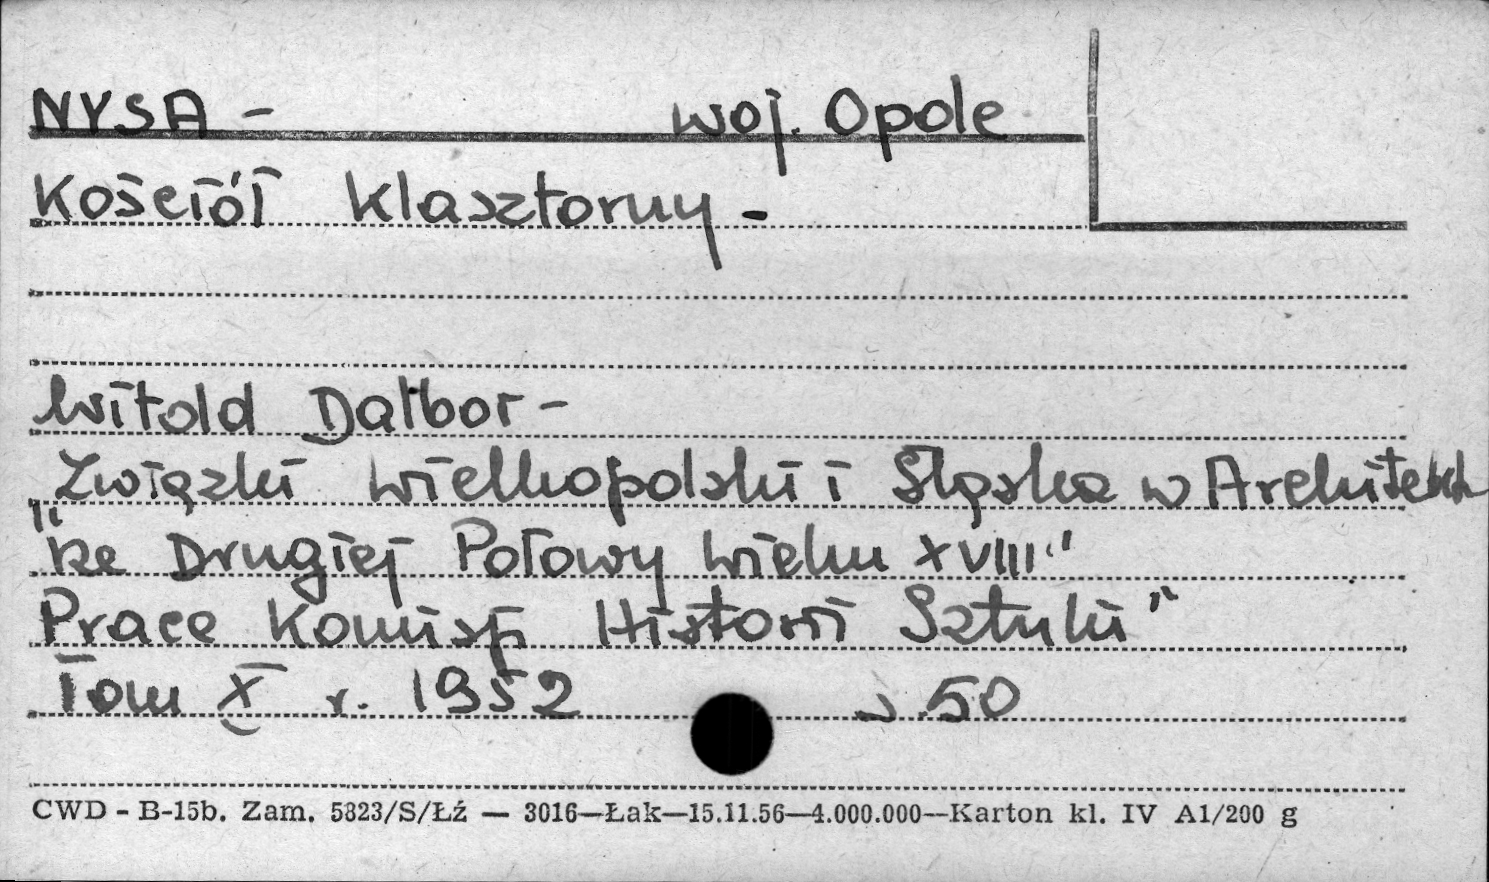 NYSA - woj. Opole
Kościół Klasztorny -
Witold Dalbor -
"Związki Wielkopolski i Śląska w Architekt
ke Drugiej Połowy Wieku XVIII"
Prace Komisji Historii Sztuki"
Tom X r. 1952 s. 50
CWD - B-15b. Zam. 5323/S/Łź — 3016—Łak—15.11.56—4.000.000—Karton kl. IV A1/200 g